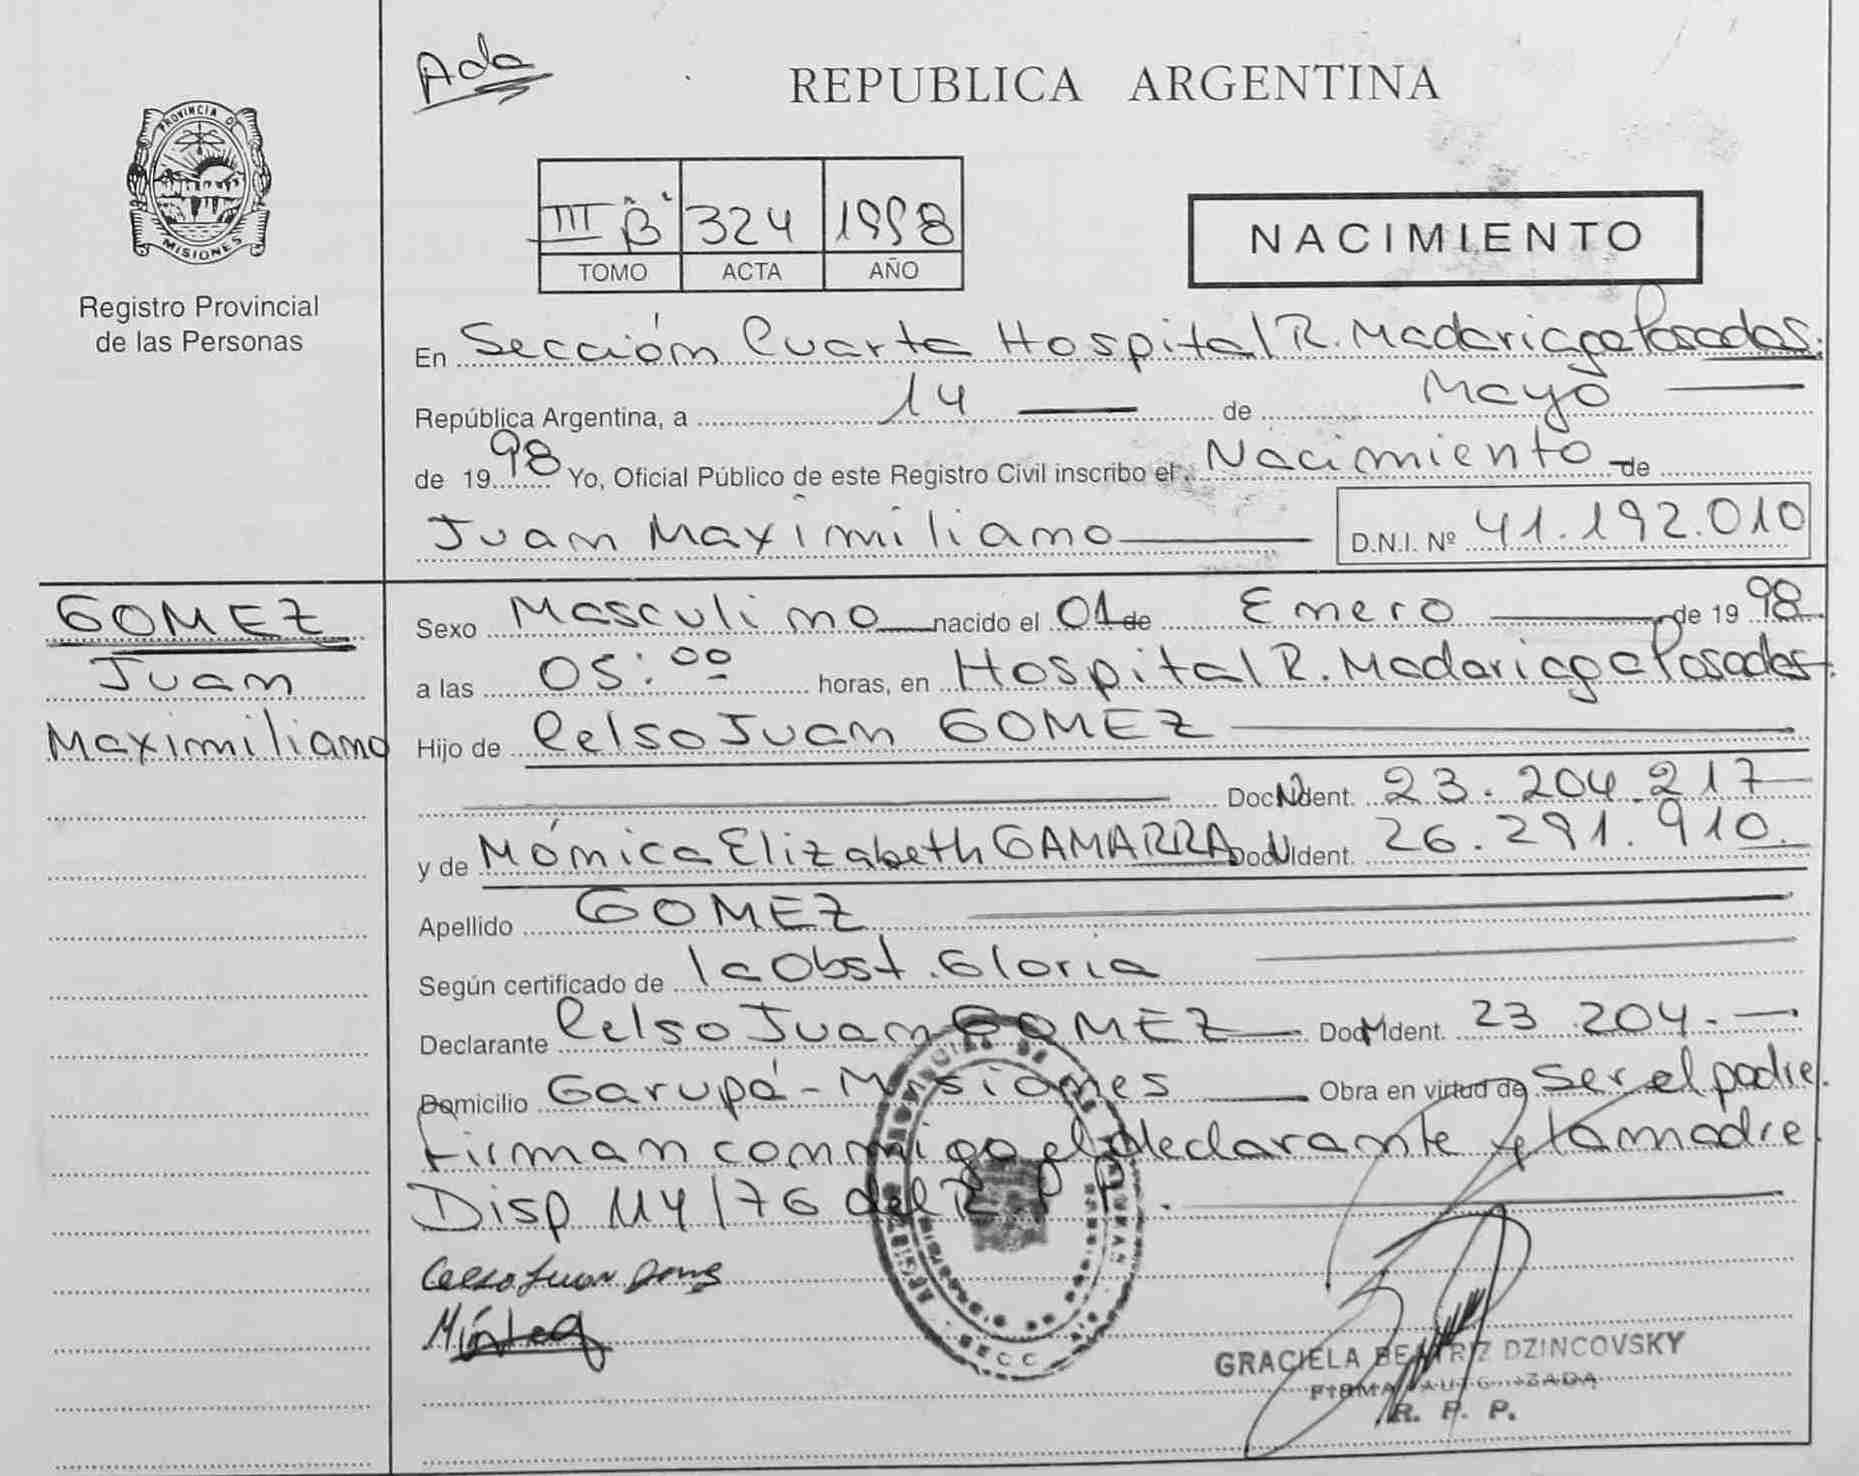 Ada
REPUBLICA ARGENTINA
PROVINCIA D
MISIONES
Registro Provincial
de las Personas
III "B" 324 1998
TOMO ACTA AÑO
NACIMIENTO
En Sección Cuarta Hospital R. Madariaga Posadas.
República Argentina, a 14 de Mayo
de 1998 Yo, Oficial Público de este Registro Civil inscribo el Nacimiento de
Juan Maximiliano D.N.I. Nº 41.192.010
GOMEZ
Juan
Maximiliano
Sexo Masculino nacido el 01 de Enero de 1998
a las 05:00 horas, en Hospital R. Madariaga Posadas.
Hijo de Celso Juan GOMEZ
Doc. N Ident. 23.204.217
y de Mónica Elizabeth GAMARRA Doc. N Ident. 26.291.910.
Apellido GOMEZ
Según certificado de la Obst. Gloria
Declarante Celso Juan GOMEZ Doc. N Ident. 23.204.-
Domicilio Garupá - Misiones Obra en virtud de ser el padre.
Firman conmigo el declarante y la madre.
Disp 114/76 del R.P.P.
Celso Juan
GRACIELA BEATRIZ DZINCOVSKY
FIRMA AUTORIZADA
R. P. P.